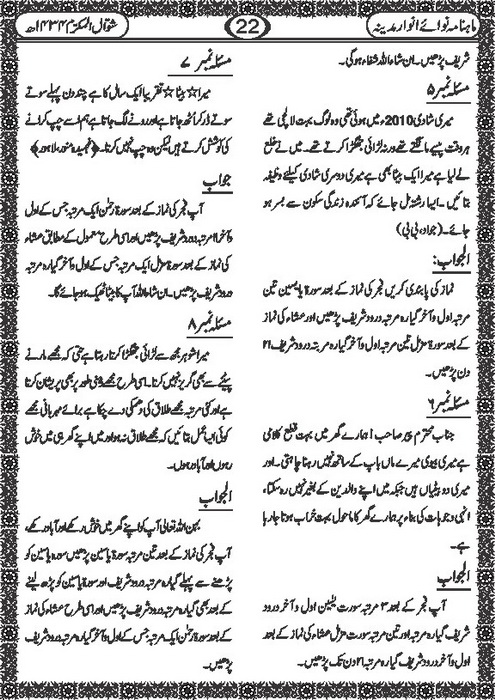 ماہنامہ نوائے انوار مدینہ
22
شوال المکرم ۱۴۳۴ھ
شریف پڑھیں۔ ان شاءاللہ شفاء ہوگی۔
مسئلہ نمبر ۵
میری شادی 2010ء میں ہوئی تھی وہ لوگ بہت لالچی تھے
ہر وقت پیسے مانگتے تھے ورنہ لڑائی جھگڑا کرتے تھے۔ میں نے خلع
لے لیا ہے میرا ایک بیٹا بھی ہے میری دوسری شادی کیلئے وظیفہ
بتائیں۔ ایسا رشتہ مل جائے کہ آئندہ زندگی سکون سے بسر ہو
جائے۔ (جواد، پی پی)
الجواب:
نماز کی پابندی کریں فجر کی نماز کے بعد سورۃ یاسین تین
مرتبہ اول و آخر گیارہ مرتبہ درود شریف پڑھیں اور عشاء کی نماز
کے بعد سورۃ مزمل تین مرتبہ اول و آخر گیارہ مرتبہ درود شریف ۲۱
دن پڑھیں۔
مسئلہ نمبر ۶
جناب محترم پیر صاحب! ہمارے گھر میں بہت قطع کلامی
ہے میری بیوی میرے ماں باپ کے ساتھ نہیں رہنا چاہتی۔ اور
میری دو بیٹیاں ہیں جبکہ میں اپنے والدین کے بغیر نہیں رہ سکتا،
انہی وجوہات کی بناء پر ہمارے گھر کا ماحول بہت خراب ہوتا جا رہا
ہے۔
الجواب
آپ فجر کے بعد ۳ مرتبہ سورت یٰسین اول و آخر درود
شریف گیارہ مرتبہ اور تین مرتبہ سورت مزمل عشاء کی نماز کے بعد
اول و آخر گیارہ مرتبہ درود شریف ۲۱ دن تک پڑھیں۔
مسئلہ نمبر ۷
میرا ☆ بیٹا ☆ تقریباً ایک سال کا ہے چند دن پہلے سوتے
سوتے ڈر کر اٹھ جاتا ہے اور رونے لگ جاتا ہے ہم اسے چپ کرانے
کی کوشش کرتے ہیں لیکن وہ چپ نہیں کرتا۔ ﴿ لاہور﴾
جواب
آپ فجر کی نماز کے بعد سورۃ رحمٰن ایک مرتبہ جس کے اول
و آخر ۱۱ مرتبہ درود شریف پڑھیں اور اسی طرح معمول کے مطابق عشاء
کی نماز کے بعد سورۃ مزمل ایک مرتبہ جس کے اول و آخر گیارہ مرتبہ
درود شریف پڑھیں۔ ان شاءاللہ آپ کا بیٹا ٹھیک ہو جائے گا۔
مسئلہ نمبر ۸
میرا شوہر مجھ سے لڑائی جھگڑا کرتا رہتا ہے حتی کہ مجھے مارنے
پیٹنے سے بھی گریز نہیں کرتا۔ اسی طرح مجھے ذہنی طور پر بھی پریشان کرتا
ہے اور کئی مرتبہ مجھے طلاق کی دھمکی دے چکا ہے برائے مہربانی مجھے
کوئی ایسا عمل بتائیں کہ مجھے طلاق نہ ہو اور میں اپنے گھر ہی میں خوش
رہوں اور آباد رہوں۔
الجواب
بہن اللہ تعالیٰ آپ کو اپنے گھر میں خوش رکھے اور آباد رکھے،
آپ فجر کی نماز کے بعد تین مرتبہ سورۃ یاسین پڑھیں سورہ یاسین کو
پڑھنے سے پہلے گیارہ مرتبہ درود شریف اور سورۃ یاسین کو پڑھ لینے
کے بعد بھی گیارہ مرتبہ درود شریف پڑھیں اور اسی طرح عشاء کی نماز
کے بعد سورۃ رحمٰن ایک مرتبہ جس کے اول و آخر گیارہ مرتبہ درود شریف
پڑھیں۔